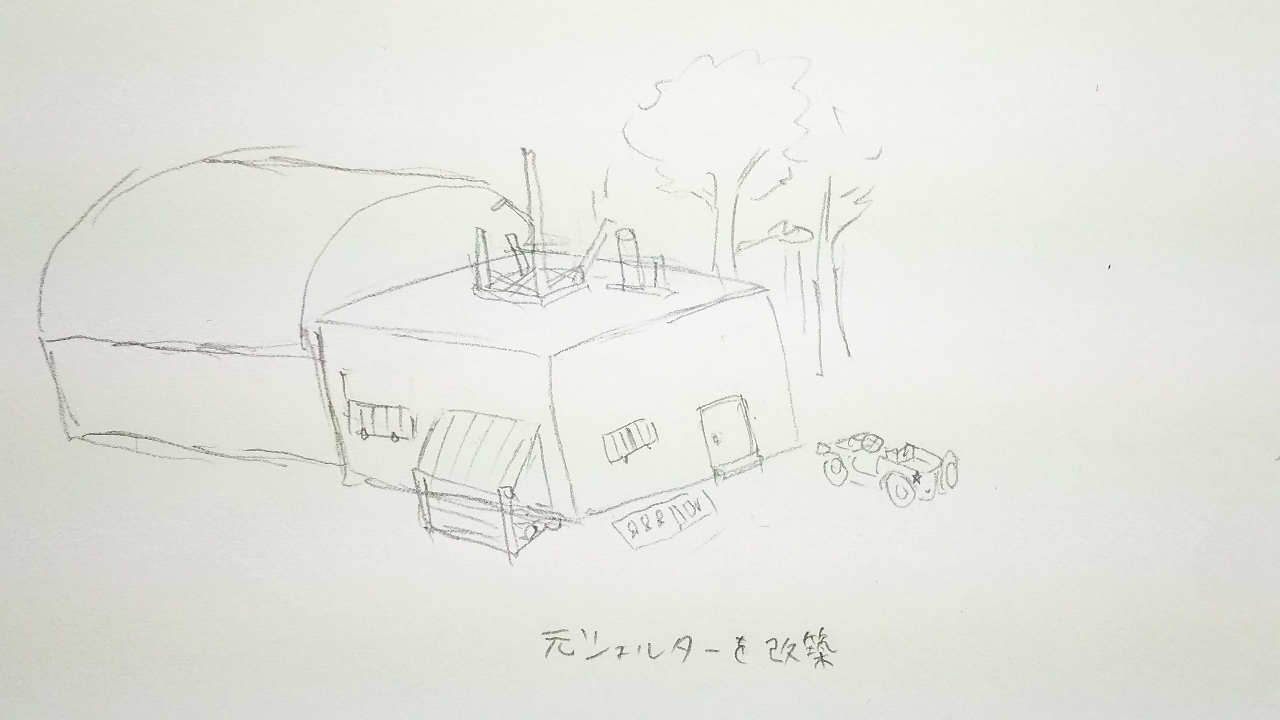 元シェルターを改築